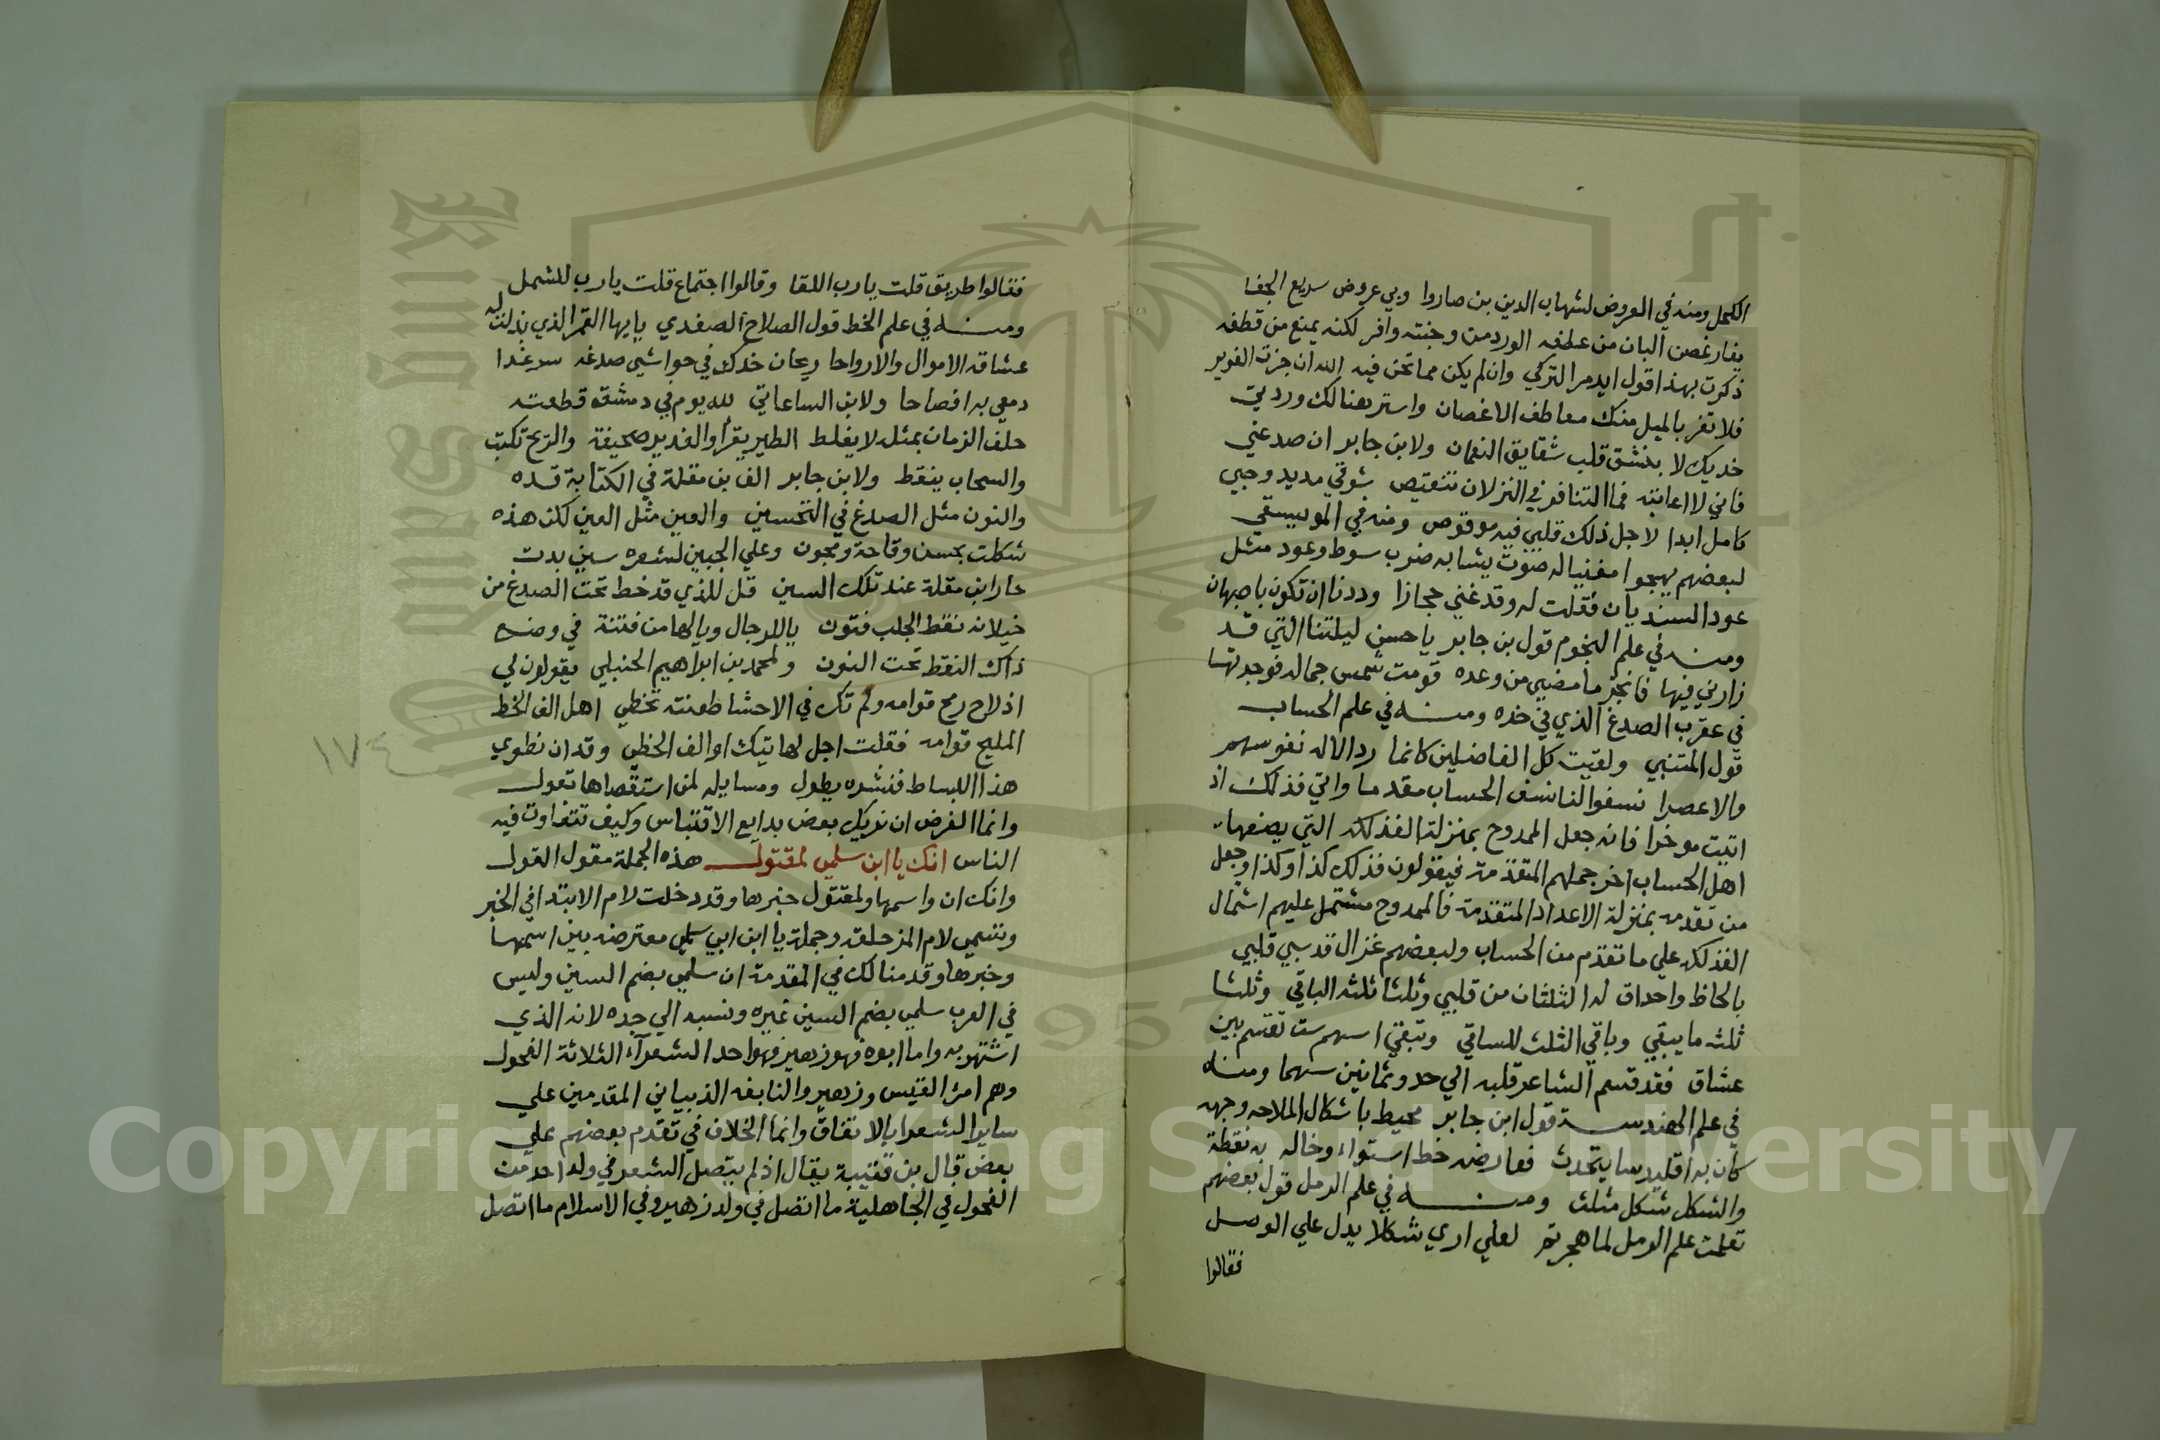 الكحل ومنه في العروض لشهاب الدين بن صاروا وبي عروض سريع الجفا
يغار غصن البان من عطفه الورد من وجنته وافر لكنه يمنع من قطفه
ذكرت بهذا قول ايدمر التركي وان لم يكن مما نحن فيه الله ان جزت الغوير
فلا تغر بالميل منك معاطف الاغصان واستر هنالك ورد يتي
خديك لا ينشق قلب شقايق النعمان ولابن جابر ان صد عني
فاني لا اعاتبه فما التنافر في النزلان تنقيص شوقي مديد وحبي
كامل ابدا لاجل ذلك قلبي فيه موقوص ومنه في الموسيقي
لبعضهم يهجوا مغنيا له صوت يشابه ضرب سوط وعود مثل
عود السنديان فقلت له وقد غني حجازا وددنا ان تكون باصبهان
ومنه في علم النجوم قول بن جابر يا حسن ليلتنا التي قد
زارني فيها فانجز ما مضي من وعده قومت شمس جماله فوجدتها
في عقرب الصدغ الذي في خده ومنه في علم الحساب
قول المتنبي ولقيت كل الفاضلين كانما رد الاله نفوسهم
والاعصرا نسقوا لنا نسق الحساب مقدما واتي فذلك اذ
اتيت موخرا فانه جعل الممدوح بمنزلة الفذلكه التي يضعها
اهل الحساب اخر جملهم المتقدمة فيقولون فذلك كذا وكذا وجعل
من تقدمه بمنزلة الاعداد المتقدمة فالممدوح مشتمل عليهم اشتمال
الفذلكه علي ما تقدم من الحساب ولبعضهم غزال قد سبي قلبي
بالحاظ واحداق له الثلثان من قلبي وثلثا ثلثه الباقي وثلثا
ثلثه ما يبقي وباقي الثلث للساقي وتبقي اسهم ست تقسم بين
عشاق فقد قسم الشاعر قلبه الي احد وثمانين سهما ومنه
في علم الهندسة قول ابن جابر محيط باشكال الملاحه وجهه
كان به اقليدسا يتحدث فعارضه خط استواء وخاله به نقطة
والشكل شكل مثلث ومنه في علم الرمل قول بعضهم
تعلمت علم الرمل لما هجرتم لعلي اري شكلا يدل علي الوصل
فقالوا
فقالوا طريق قلت يا رب اللقا وقالوا اجتماع قلت يا رب للشمل
ومنه في علم الخط قول الصلاح الصفدي يا ايها القمر الذي بذلت له
عشاقه الاموال والارواحا ريحان خدك في حواشي صدغه
دمعي به افصاحا ولابن الساعاتي لله يوم في دمشق قطعته
حلف الزمان بمثله لا يغلط الطير يقرأ والغدير صحيفة والريح تكتب
والسحاب ينقط ولابن جابر الف بن مقلة في الكتابة قده
والنون مثل الصدغ في التحسين والعين مثل العين لكن هذه
شكلت بحسن وقاحة ومجون وعلي الجبين لشعره سين بدت
حار ابن مقلة عند تلك السين قل للذي قد خط تحت الصدغ من
خيلانه نقط الجلب فتون يا للرجال ويالها من فتنة في وضع
ذاك النقط تحت النون ولمحمد بن ابراهيم الحنبلي يقولون لي
اذ لاح رمح قوامه ولم تك في الاحشا طعنته تخطي اهل الف الخط
المليح قوامه فقلت اجل لهاتيك او الف الخطي وقد ان نطوي
هذا البساط فنشره يطول ومسايله لمن استقصاها تعول
وانما الغرض ان نريك بعض بدايع الاقتباس وكيف تتفاوت فيه
الناس انك يا ابن سلمي لمقتول هذه الجملة مقول القول
وانك ان واسمها ولمقتول خبرها وقد دخلت لام الابتدا في الخبر
وتسمي لام المزحلقه وجملة يا ابن ابي سلمي معترضه بين اسمها
وخبرها وقدمنا لك في المقدمة ان سلمي بضم السين وليس
في العرب سلمي بضم السين غيره ونسبه الي جده لانه الذي
اشتهر به واما ابوه فهو زهير فهو احد الشعرآء الثلاثة الفحول
وهم امرؤ القيس وزهير والنابغه الذبياني المقدمين علي
ساير الشعرا بالاتفاق وانما الخلاف في تقدم بعضهم علي
بعض قال بن قتيبة يقال اذ لم يتصل الشعر في ولد احد من
الفحول في الجاهلية ما اتصل في ولد زهير وفي الاسلام ما اتصل
١٧٤
King Saud University
1957
Copyright © King Saud University